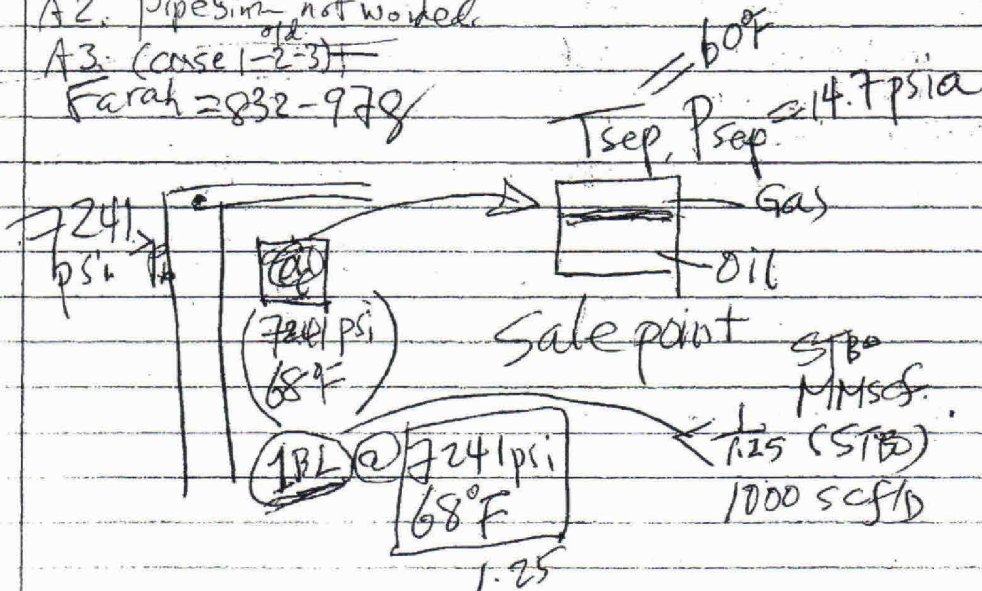 A2. Pipesim not worked.
old
A3. (case 1-2-3)
Farah = 832-978
60°F
Tsep, Psep = 14.7 psia
7241
psi
Gas
oil
(7241 psi
68°F)
Sale point
STBO
MMscf.
1BL @ 7241 psi
68°F
1.25
1/1.25 (STBO)
1000 scf/D